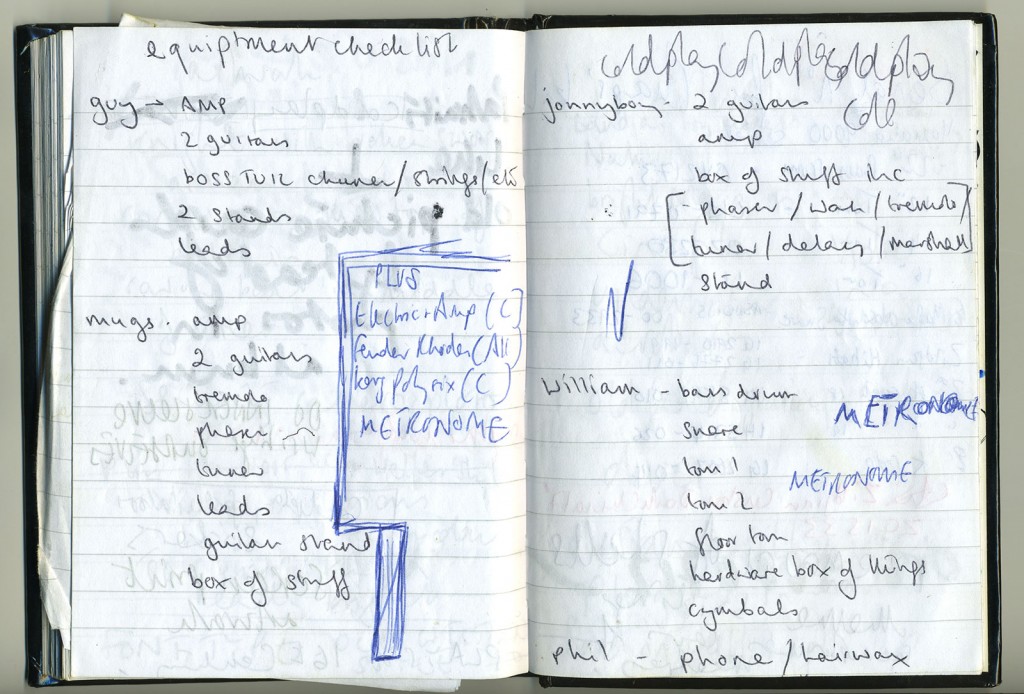 equiptment checklist
guy → AMP
2 guitars
BOSS TU12 chuner/strings/etc
2 stands
leads
mugs. amp
2 guitars
tremolo
phaser
tuner
leads
guitar stand
box of stuff
PLUS
Electric + Amp (C)
fender Rhodes (All)
korg polysix (C)
METRONOME
coldplay coldplay coldplay
Col
jonnyboy - 2 guitars
amp
box of stuff inc
[- phaser / wah / tremolo]
[tuner / delay / marshall]
stand
N
William - bass drum
snare
tom 1
tom 2
floor tom
hardware box of things
cymbals
METRONOME
METRONOME
phil - phone / hairwax